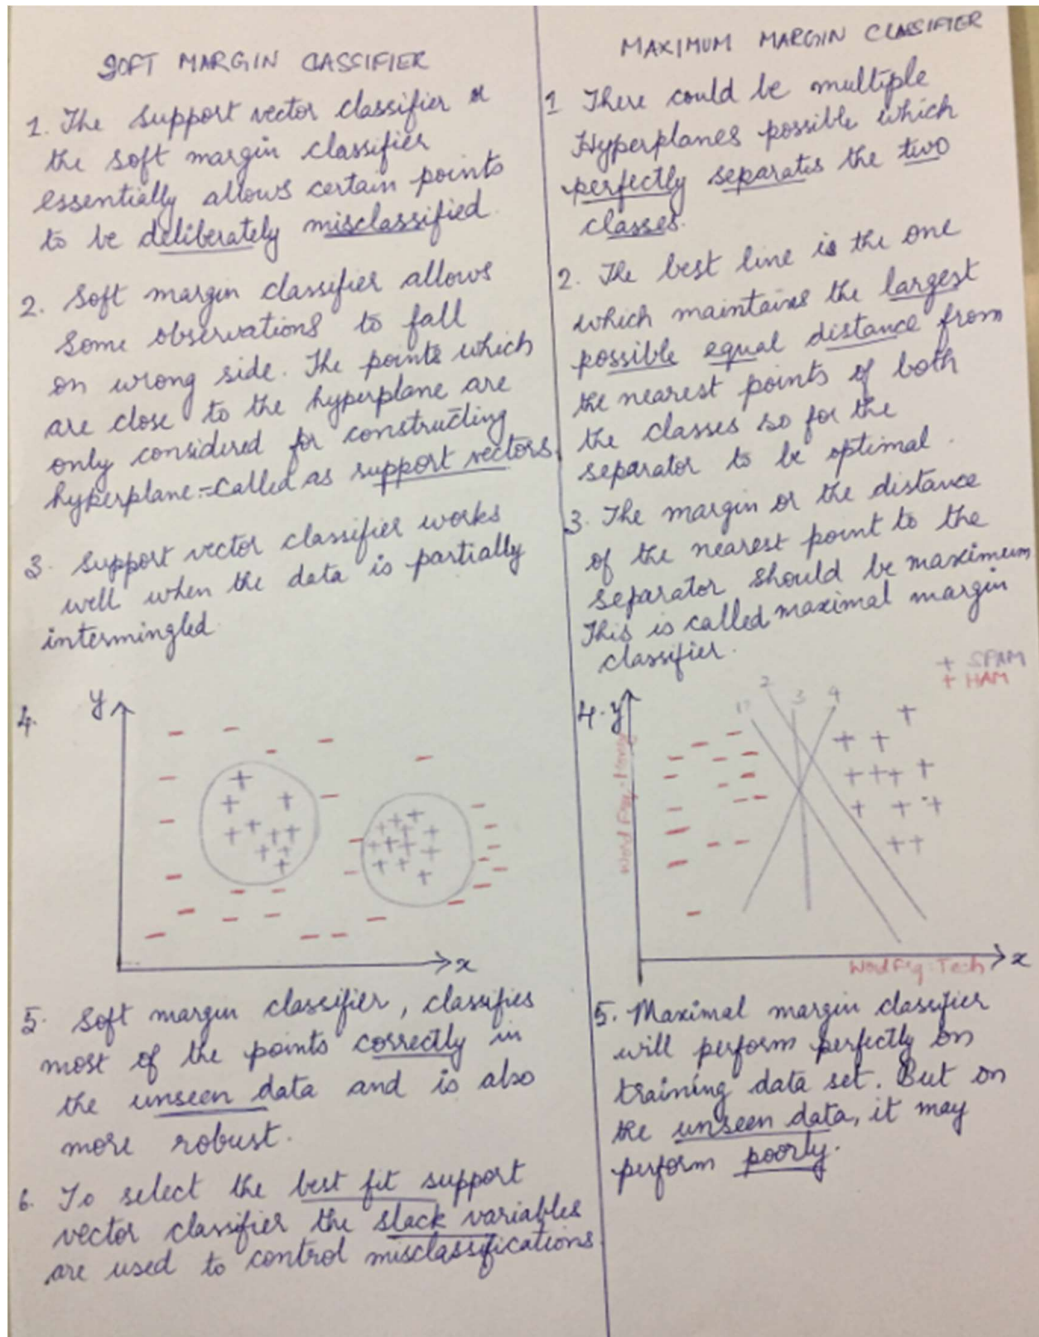 SOFT MARGIN CASSIFIER
1. The Support vector classifier or
the soft margin classifier
essentially allows certain points
to be deliberately misclassified.
2. Soft margin classifier allows
some observations to fall
on wrong side. The points which
are close to the hyperplane are
only considered for constructing
hyperplane = called as support vectors
3. Support vector classifier works
well when the data is partially
intermingled
4.
y
x
5. Soft margin classifier, classifies
most of the points correctly in
the unseen data and is also
more robust.
6. To select the best fit support
vector classifier the slack variables
are used to control misclassifications
MAXIMUM MARGIN CLASSIFIER
1 There could be multiple
Hyperplanes possible which
perfectly separates the two
classes.
2. The best line is the one
which maintains the largest
possible equal distance from
the nearest points of both
the classes so for the
separator to be optimal.
3. The margin or the distance
of the nearest point to the
separator should be maximum
This is called maximal margin
classifier.
+ SPAM
+ HAM
4. y
1 2 3 4
Word Freq: Money
Word Freq: Tech
x
5. Maximal margin classifier
will perform perfectly on
training data set. But on
the unseen data, it may
perform poorly.